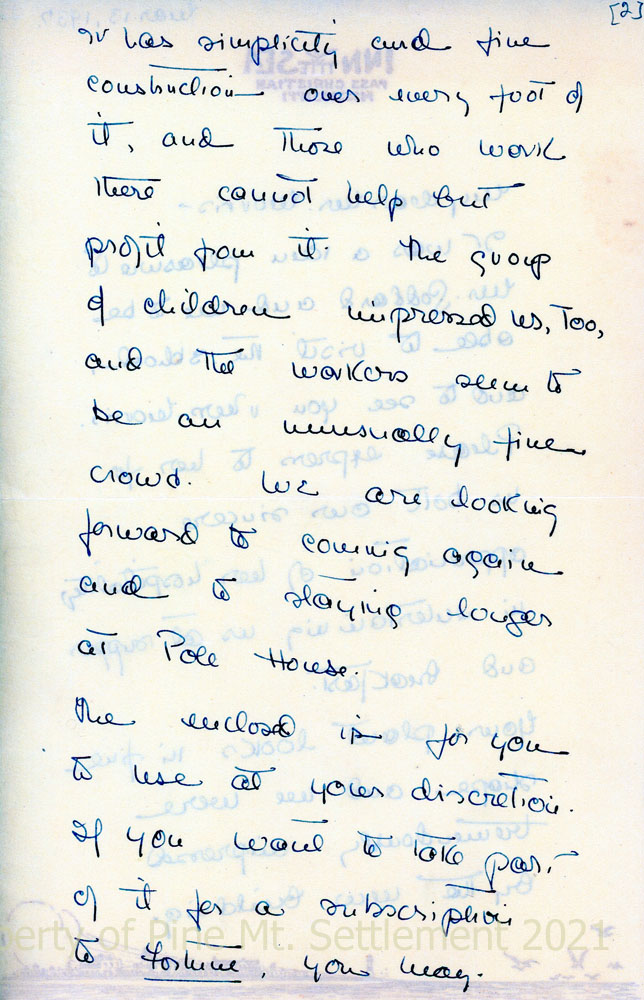 [2]
It has simplicity and fine
construction over every foot of
it, and those who work
there cannot help but
profit from it. The group
of children impressed us, too,
and the workers seem to
be an unusually fine
crowd. We are looking
forward to coming again
and to staying longer
at Pole House.
The enclosed is for you
to use at your discretion.
If you want to take part
of it for a subscription
to Fortune, you may.
perty of Pine Mt. Settlement 2021